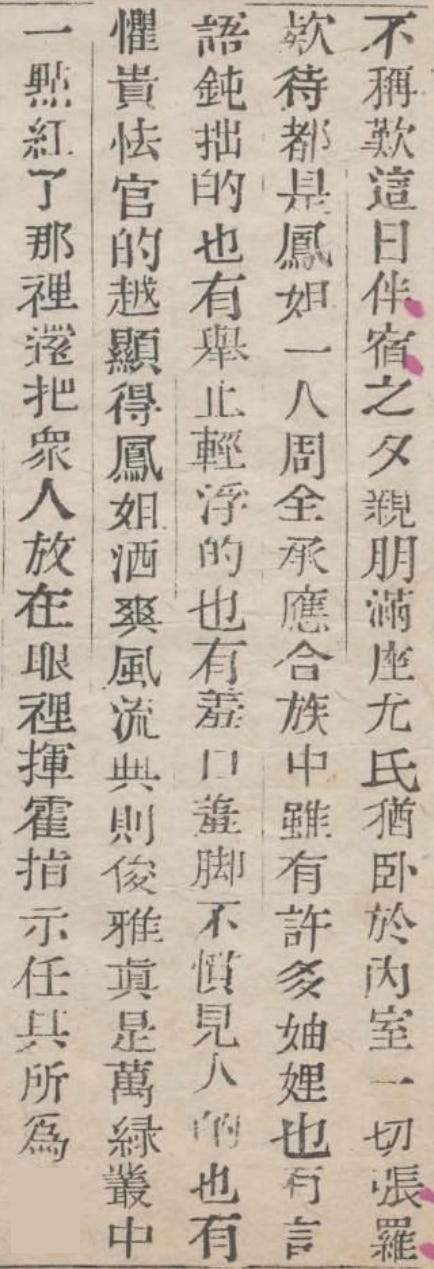 不稱歎這日伴宿之夕親朋滿座尤氏猶卧於內室一切張羅
欵待都是鳳姐一人周全承應合族中雖有許多妯娌也有言
語鈍拙的也有舉止輕浮的也有羞口羞脚不慣見人的也有
懼貴怯官的越顯得鳳姐洒爽風流典則俊雅真是萬綠叢中
一點紅了那裡還把衆人放在眼裡揮霍指示任其所爲